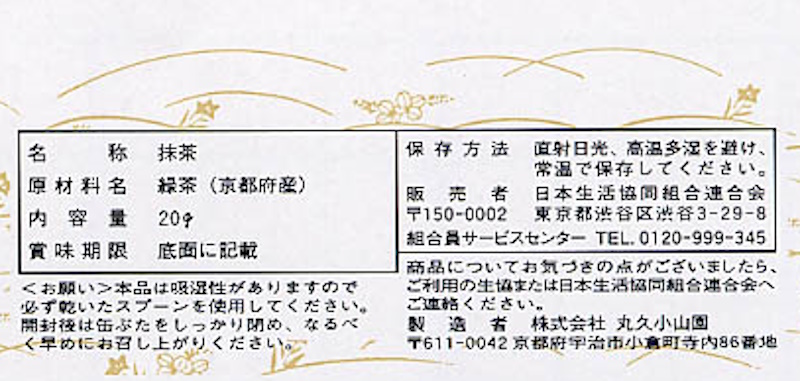 名称 抹茶
原材料名 緑茶（京都府産）
内容量 20g
賞味期限 底面に記載
＜お願い＞本品は吸湿性がありますので
必ず乾いたスプーンを使用してください。
開封後は缶ぶたをしっかり閉め、なるべ
く早めにお召し上がりください。
保存方法 直射日光、高温多湿を避け、
常温で保存してください。
販売者 日本生活協同組合連合会
〒150-0002 東京都渋谷区渋谷3-29-8
組合員サービスセンター TEL.0120-999-345
商品についてお気づきの点がございましたら、
ご利用の生協または日本生活協同組合連合会へ
ご連絡ください。
製造者 株式会社 丸久小山園
〒611-0042 京都府宇治市小倉町寺内86番地